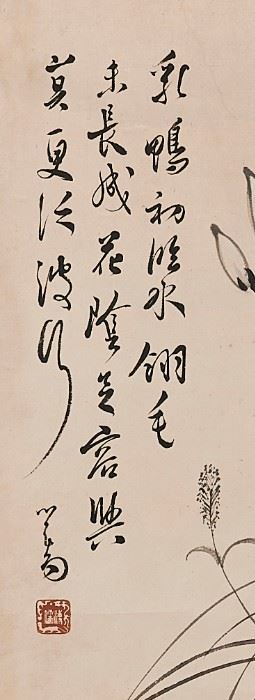 乳鴨初臨水翎毛
未長成花陰足容與
莫更泛波行
心畬